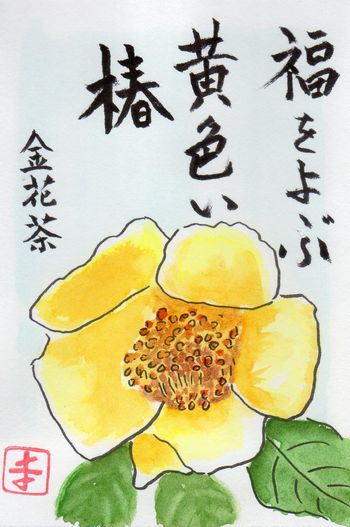 福をよぶ
黄色い
椿
金花茶